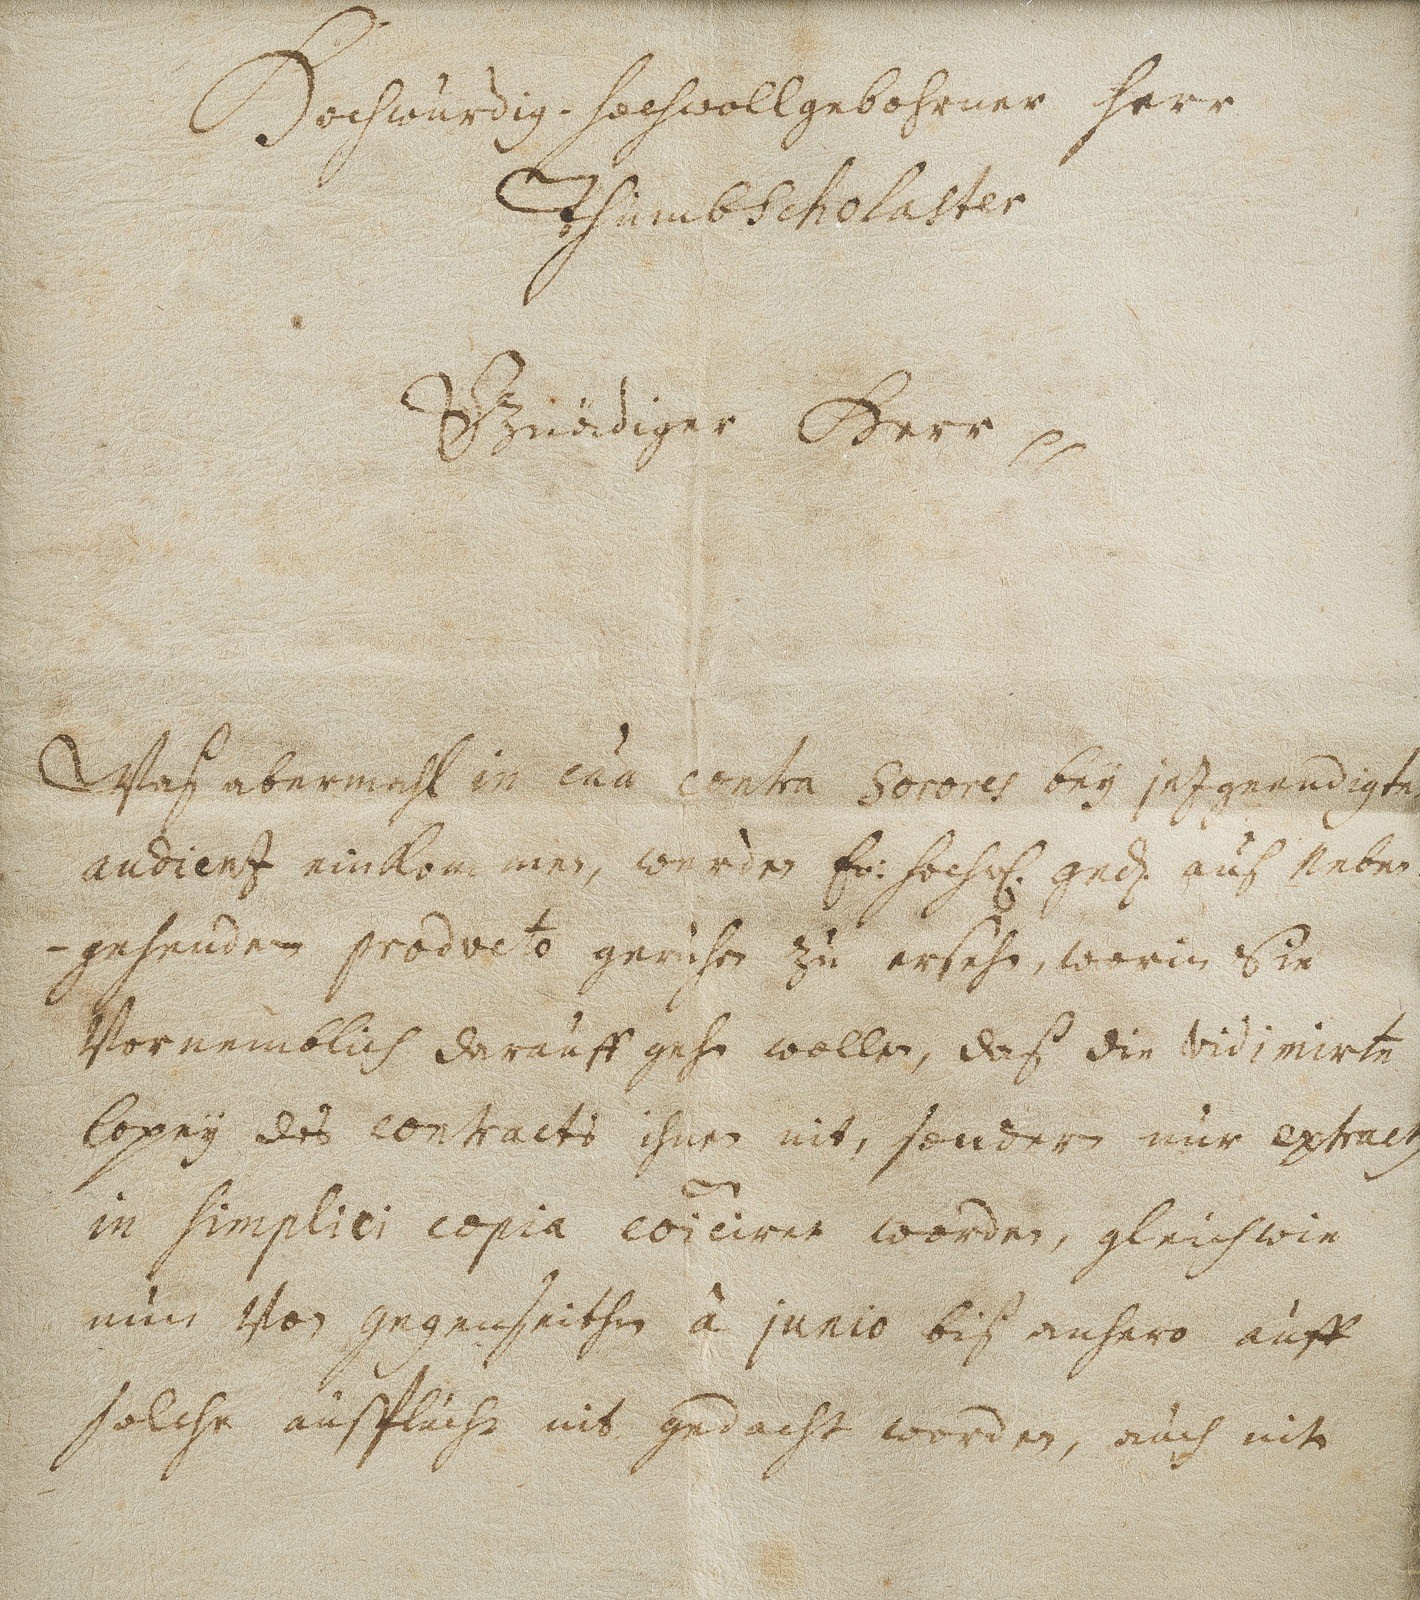 Hochwürdig-Hochwollgebohrner Herr
Thumbscholaster
Gnädiger Herr
Waß abermahl in cãa contra Sorores bey jeßgeendigte
audientz einkommen, werden Ew: hochw. gnd. auß neben-
-gehendem producto geruhen zu ersehen, worin Sie
Vornemblich darauff gehen wollen, daß die vidimirte
Copey des contracts ihnen nit, sondern nur extract
in simplici copia cõiciret worden, gleichwie
nun Von gegenseithen à junio biß anhero auff
solche außflücht nit gedacht worden, auch nit